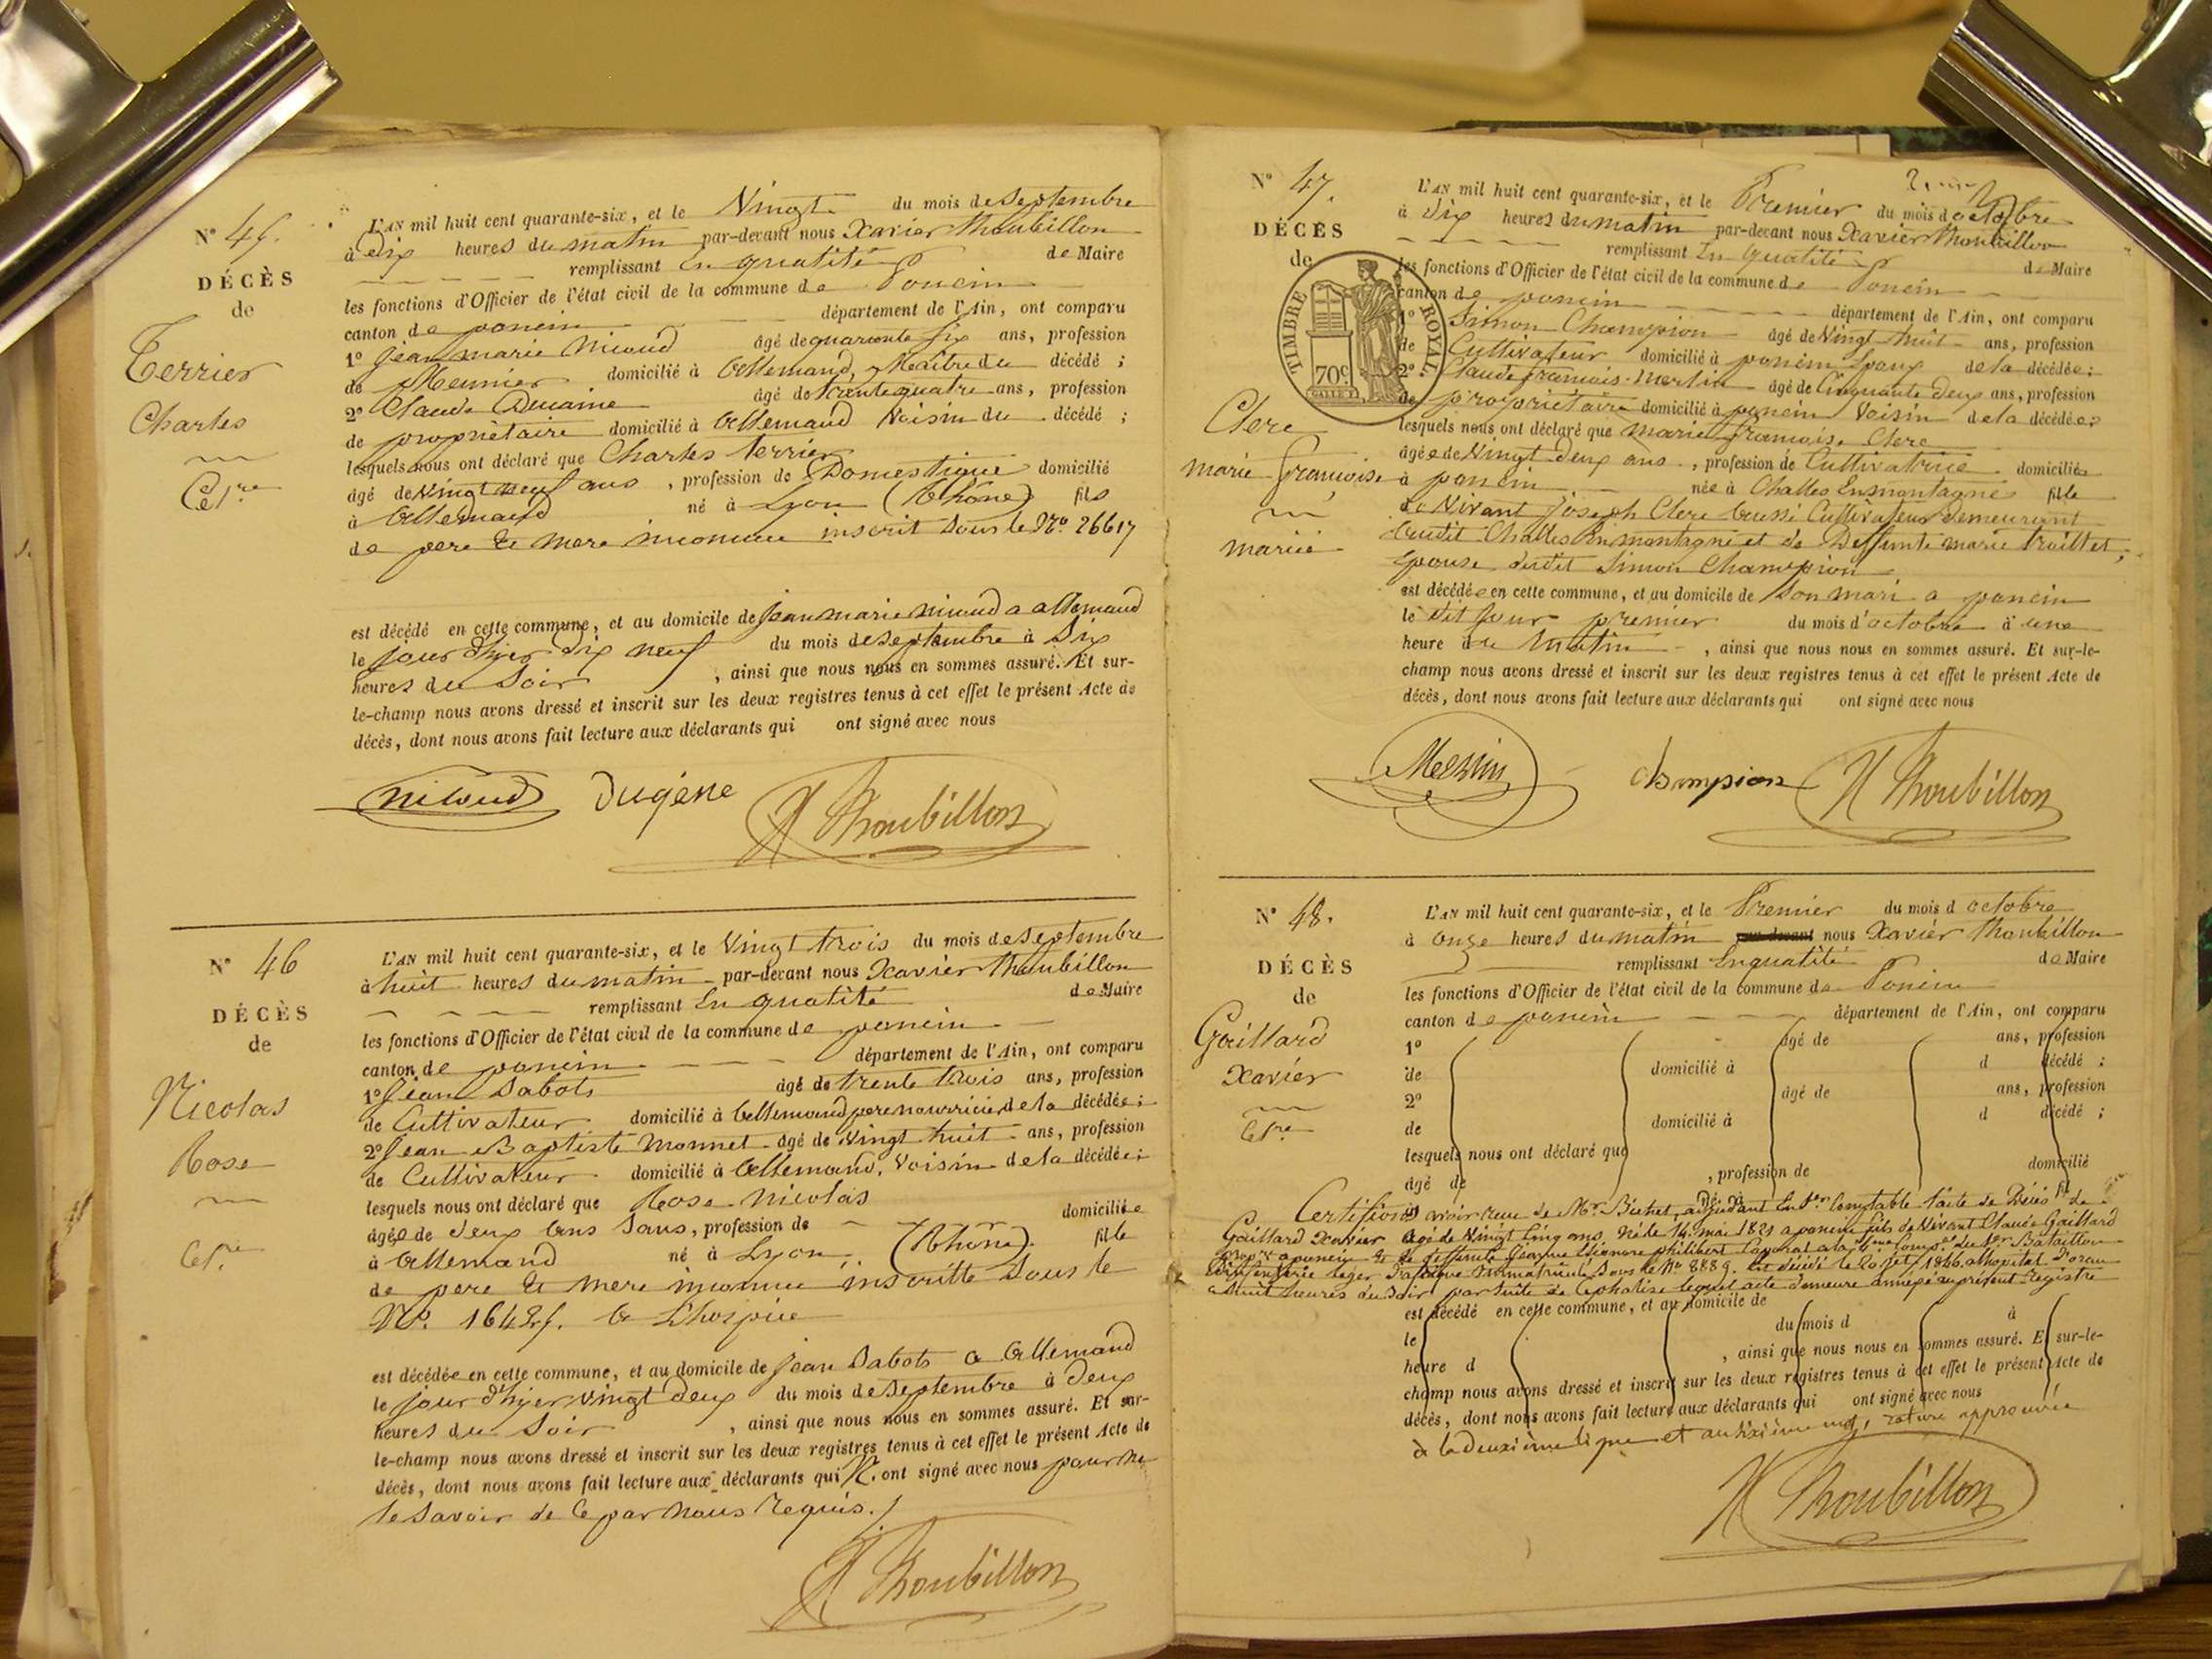 N° 45.
DÉCÈS
de
Terrier
Charles
Cel.re
L'AN mil huit cent quarante-six, et le Vingt du mois de Septembre
à dix heures du matin par-devant nous Xavier Thoubillon
remplissant En qualité de Maire
les fonctions d'Officier de l'état civil de la commune de Poncin
canton de poncin département de l'Ain, ont comparu
1° Jean marie nicoud âgé de quarante Six ans, profession
de Meunier domicilié à Allemand, Maître du décédé ;
2° Claude âgé de trente quatre ans, profession
de propriétaire domicilié à Allemand Voisin du décédé ;
lesquels nous ont déclaré que Charles terrier
âgé de Vingt neuf ans , profession de Domestique domicilié
à Allemand né à Lyon (Rhône) fils
de pere et mere inconnu inscrit Sous le N° 26617
est décédé en cette commune, et au domicile de Jean marie nicoud a allemand
le jour d'hyer dix neuf du mois de Septembre à Six
heures du Soir , ainsi que nous nous en sommes assuré. Et sur-
le-champ nous avons dressé et inscrit sur les deux registres tenus à cet effet le présent Acte de
décès, dont nous avons fait lecture aux déclarants qui ont signé avec nous
nicoud Dugène X Thoubillon
N° 46
DÉCÈS
de
Nicolas
Rose
Cel.re
L'AN mil huit cent quarante-six, et le Vingt trois du mois de Septembre
à huit heures du matin par-devant nous Xavier Thoubillon
remplissant En qualité de Maire
les fonctions d'Officier de l'état civil de la commune de poncin
canton de poncin département de l'Ain, ont comparu
1° Jean Sabots âgé de trente trois ans, profession
de Cultivateur domicilié à Allemand pere nourricier de la décédée ;
2° Jean Baptiste Monnet âgé de Vingt huit ans, profession
de Cultivateur domicilié à Allemand, Voisin de la décédée ;
lesquels nous ont déclaré que Rose Nicolas
âgée de deux ans Sans, profession de domiciliée
à Allemand né à Lyon, (Rhône) fille
de pere et mere inconnu inscritte Sous le
N°. a L'hospice
est décédée en cette commune, et au domicile de Jean Sabots a Allemand
le jour d'hyer Vingt deux du mois de Septembre à deux
heures du Soir , ainsi que nous nous en sommes assuré. Et sur-
le-champ nous avons dressé et inscrit sur les deux registres tenus à cet effet le présent Acte de
décès, dont nous avons fait lecture aux déclarants qui N. ont signé avec nous pour ne
le Savoir de Ce par nous Requis.
X Thoubillon
N° 47.
DÉCÈS
de
TIMBRE ROYAL
70c
Clerc
marie françoise
mariée
L'AN mil huit cent quarante-six, et le Premier du mois d octobre
à dix heures du matin par-devant nous Xavier Thoubillon
remplissant En qualité de Maire
les fonctions d'Officier de l'état civil de la commune de Poncin
canton de poncin département de l'Ain, ont comparu
1° Simon Champion âgé de Vingt huit ans, profession
de Cultivateur domicilié à poncin Epoux de la décédée ;
2° Claude françois Merlin âgé de Cinquante deux ans, profession
de propriétaire domicilié à poncin Voisin de la décédée ;
lesquels nous ont déclaré que marie françoise Clerc
âgée de Vingt deux ans , profession de Cultivatrice domiciliée
à poncin née à Challes En montagne fille
de Vivant Joseph Clerc Aussi Cultivateur demeurant
audit Challes En montagne et de Deffunte marie
Epouse dudit Simon Champion
est décédée en cette commune, et au domicile de Son mari a poncin
le dit Jour premier du mois d'octobre à une
heure du Matin , ainsi que nous nous en sommes assuré. Et sur-le-
champ nous avons dressé et inscrit sur les deux registres tenus à cet effet le présent Acte de
décès, dont nous avons fait lecture aux déclarants qui ont signé avec nous
Champion X Thoubillon
N° 48.
DÉCÈS
de
Gaillard
Xavier
Cel.re
L'AN mil huit cent quarante-six, et le Premier du mois d octobre
à onze heures du matin par-devant nous Xavier Thoubillon
remplissant En qualité de Maire
les fonctions d'Officier de l'état civil de la commune de Poncin
canton de poncin département de l'Ain, ont comparu
1° âgé de ans, profession
de domicilié à d décédé ;
2° âgé de ans, profession
de domicilié à d décédé ;
lesquels nous ont déclaré que
âgé de , profession de domicilié
né à fil
Certifions avoir reçu de Mr. adjudant comptable l'acte de Décès de
Gaillard Xavier agé de Vingt Cinq ans, né le 14 mai 1821 a poncin fils de Vivant Claude Gaillard
propre a poncin & de deffunte Jeanne Eléonore philibert Caporal a la Comp.ie du 1er Bataillon
D'infanterie leger D'afrique immatriculé Sous le N° 8889. Est décédé le 20 1846 a l'hopital D'oran
a huit heures du Soir par Suite de Cephalise lequel acte demeure annexé au présent Registre
est décédé en cette commune, et au domicile de
le du mois d à
heure d , ainsi que nous nous en sommes assuré. Et sur-le-
champ nous avons dressé et inscrit sur les deux registres tenus à cet effet le présent Acte de
décès, dont nous avons fait lecture aux déclarants qui ont signé avec nous
à la deuxième ligne et au sixième mot, rature approuvée
X Thoubillon